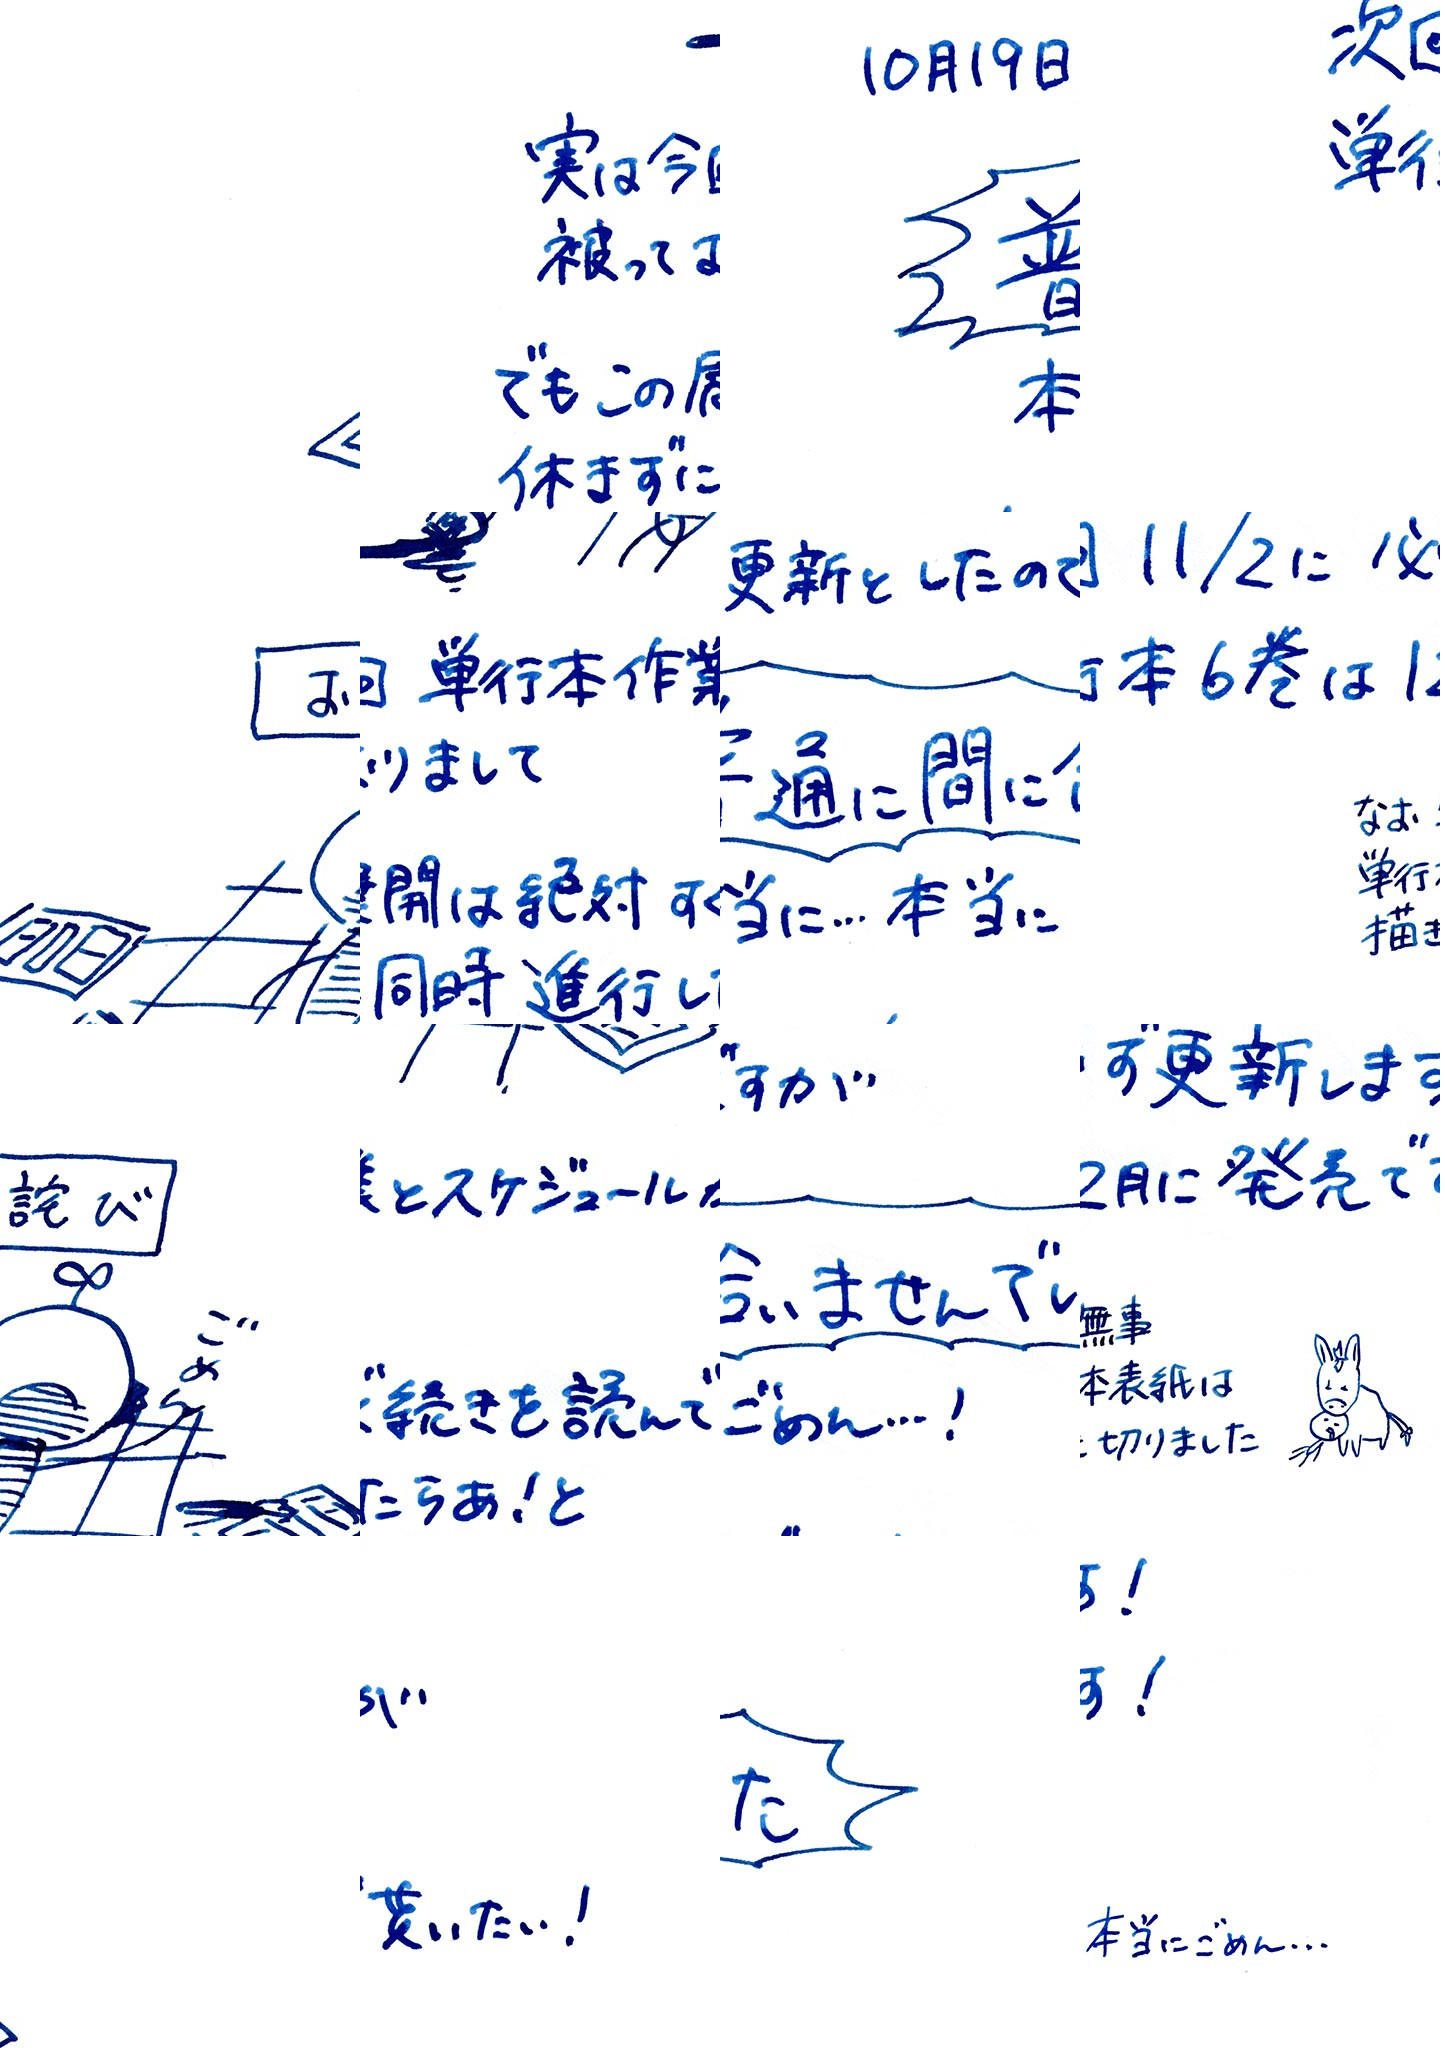 お詫び
ごめん
実は今回 単行本作業とスケジュールが
被っておりまして
でもこの展開は絶対すぐ続きを読んで貰いたい!
休まずに同時進行したらあ!と
10月19日更新としたのですが
普通に間に合いませんでした
本当に…本当にごめん…!
次回 11/2に必ず更新します!
単行本6巻は12月に発売です!
なお無事
単行本表紙は
描き切りました
本当にごめん…